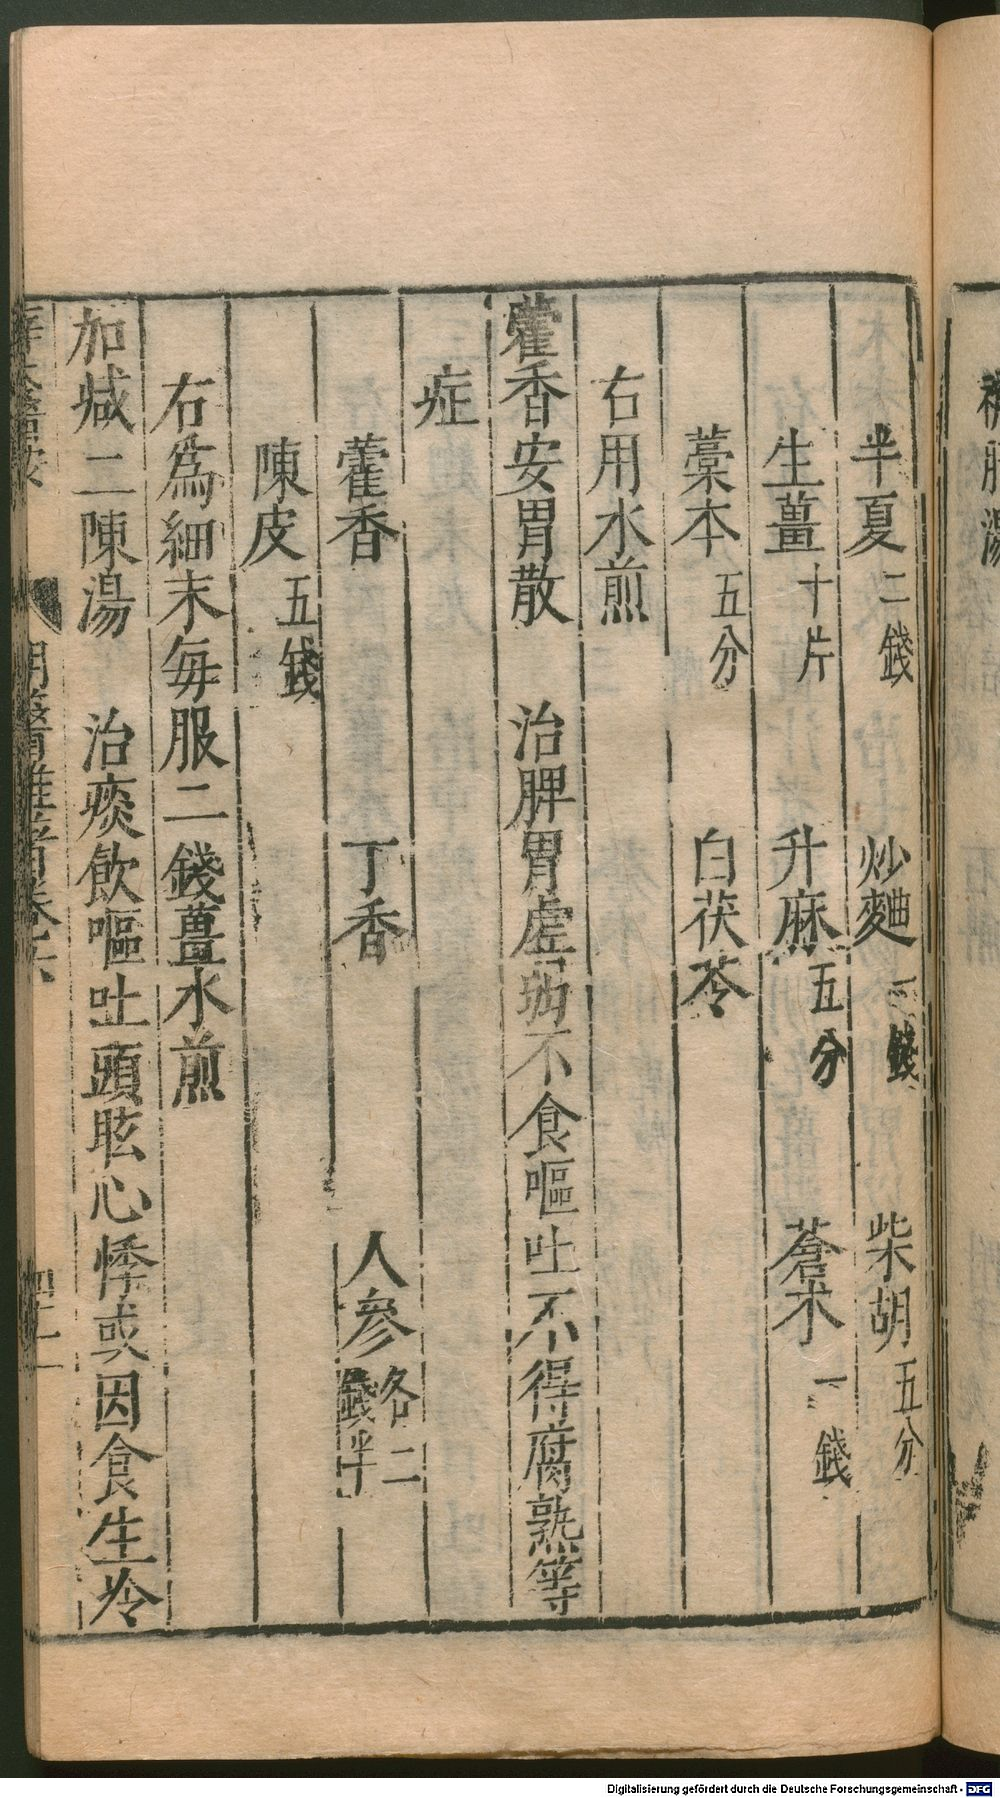 半夏二錢 炒麯二錢 柴胡五分
生薑十片 升麻五分 蒼术一錢
藁本五分 白茯苓
右用水煎
藿香安胃散 治脾胃虛弱不食嘔吐不得腐熟等
症
藿香 丁香 人參各二錢半
陳皮五錢
右為細末每服二錢薑水煎
加減二陳湯 治痰飲嘔吐頭眩心悸或因食生冷
明醫雜著卷之六
Digitalisierung gefördert durch die Deutsche Forschungsgemeinschaft - DFG